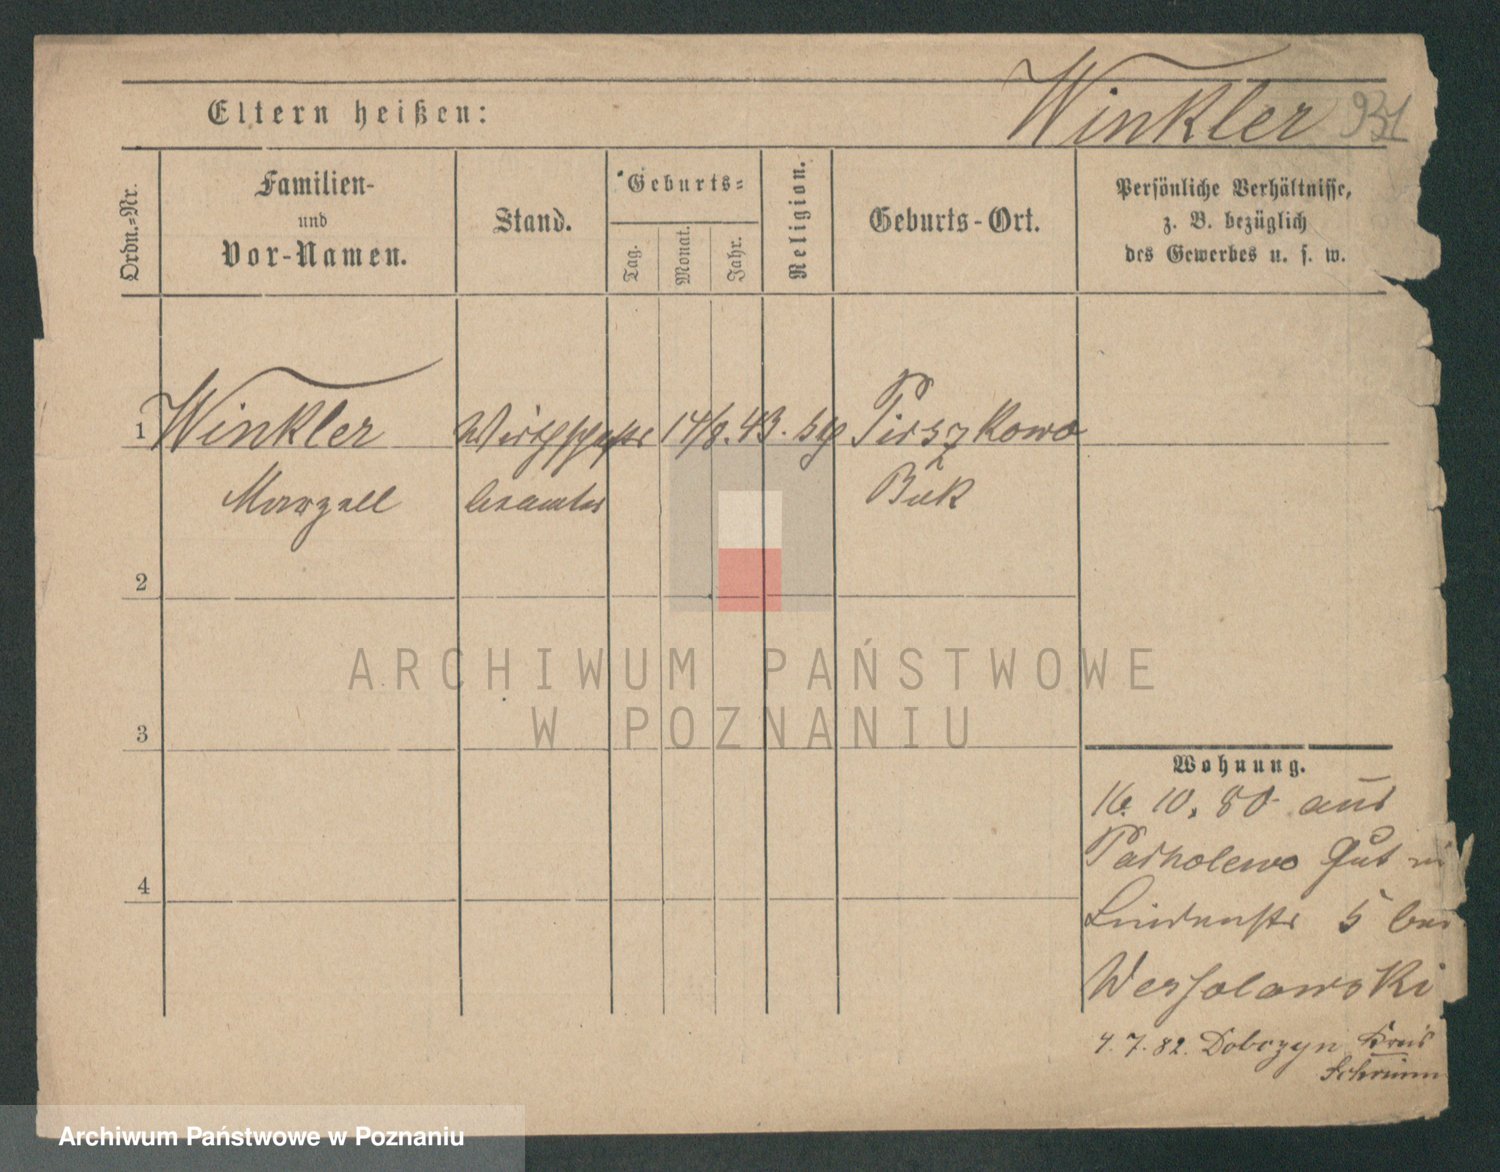 Eltern heißen:
Winkler 931
Ordn.-Nr.
Familien-
und
Vor-Namen.
Stand.
Geburts-
Tag.
Monat.
Jahr.
Religion.
Geburts-Ort.
Persönliche Verhältnisse,
z. B. bezüglich
des Gewerbes u. s. w.
1 Winkler Wirthschafts 14/8. 43. Pirszkowo
Marzell beamter Buk
2
3
4
ARCHIWUM PAŃSTWOWE
W POZNANIU
Wohnung.
16. 10. 80 aus
Parkolewo Gut in
Lindenstr 5 bei
Wessolowski
4. 7. 82. Dobczyn Kreis
Schrimm
Archiwum Państwowe w Poznaniu